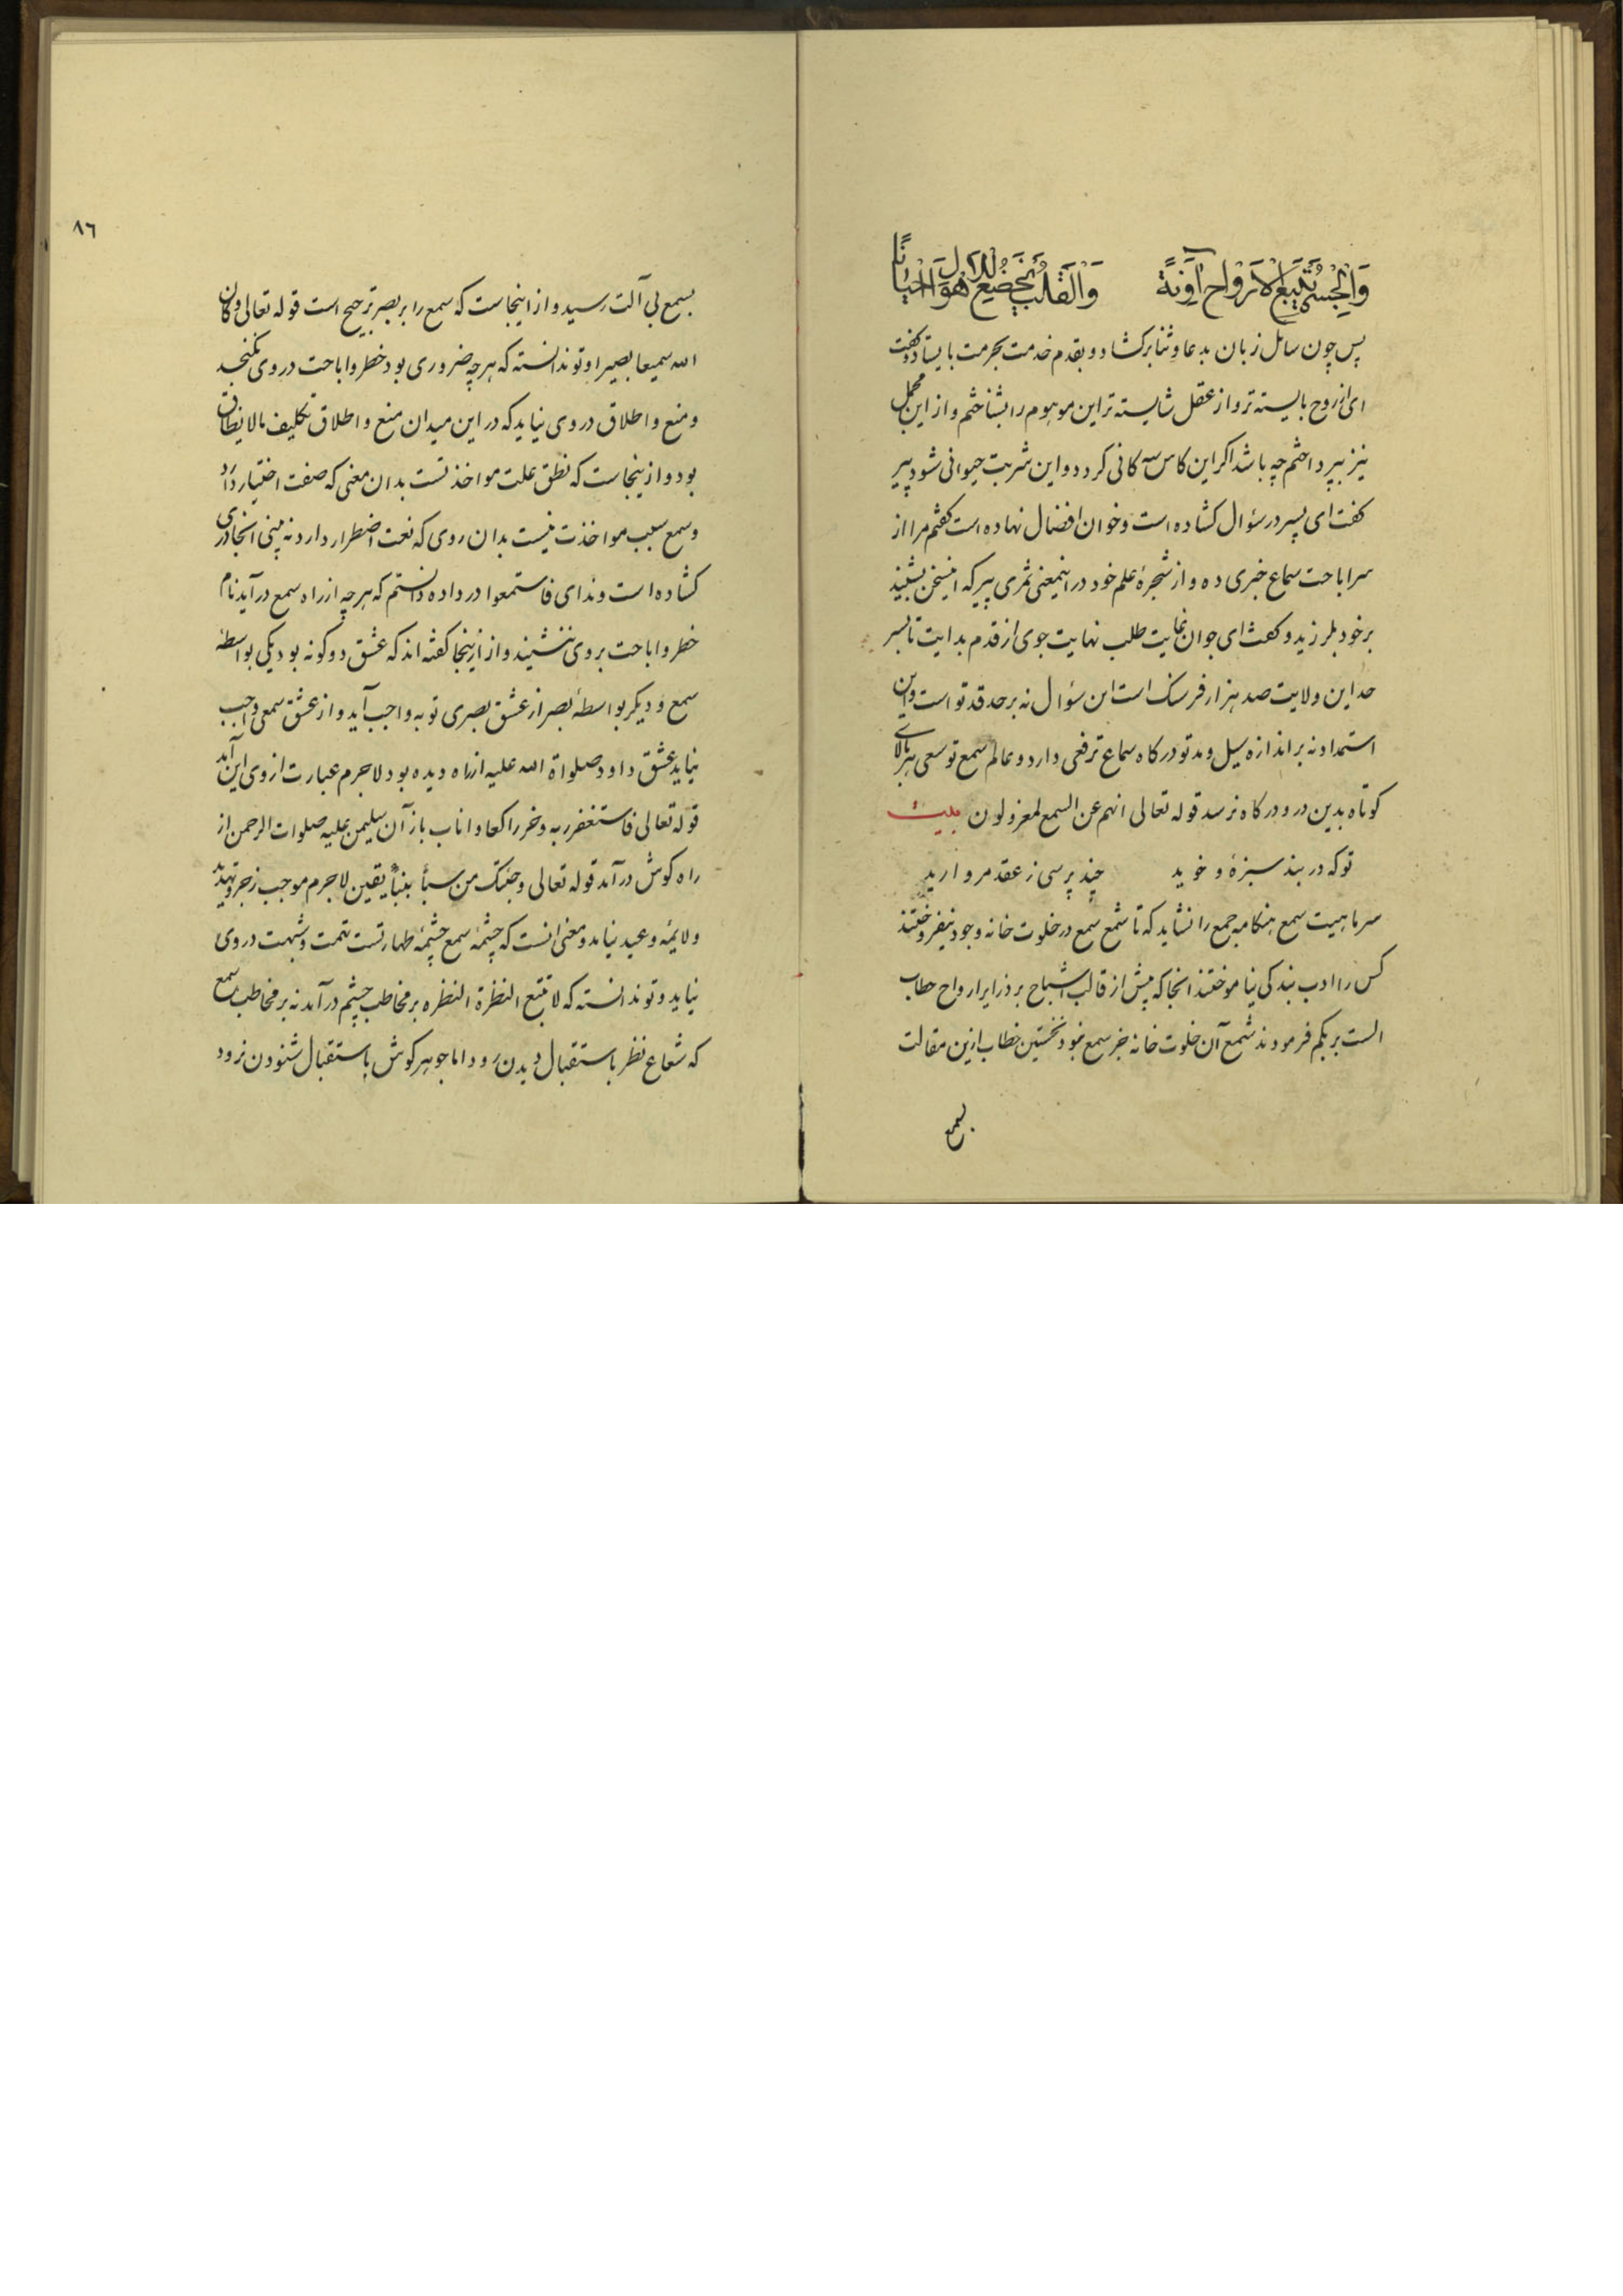 وَالْجِسْمُ یَتْبَعُ لِلْاَرْوَاحِ آوِنَةً وَالْقَلْبُ یَخْضَعُ لِلْاَهْوَاءِ اَحْیَانًا
پس چون سائل زبان بدعا وثنا برکشاد و بقدم خدمت بحرمت بایستاد و کفت
ای از روح بایسته تر و از عقل شایسته تر این موهوم را بشناختم و از این مجمل
نیز بپرداختم چه باشد اکر این کاس سه کانی کردد و این شربت حیوانی شود پیر
کفت ای پسر در سؤال کشاده است و خوان افضال نهاده است کفتم مرا از
سر اباحت سماع خبری ده و از شجرهٔ علم خود در اینمعنی ثمری پیر که اینسخن بشنید
برخود بلرزید و کفت ای جوان غایت طلب نهایت جوی از قدم بدایت تا بسر
حد این ولایت صد هزار فرسنک است این سؤال نه بر حد قد تو است و این
استمداد نه بر اندازه سیل و مد تو درکاه سماع ترفعی دارد و عالم سمع توسعی هر بالای
کوتاه بدین در و درکاه نرسد قوله تعالی انهم عن السمع لمعزولون بیت
تو که در بند سبزهٔ و خوید چند پرسی ز عقد مروارید
سر ماهیت سمع هنکامه جمع را نشاید که تا شمع سمع در خلوت خانه وجود نیفروختند
کس را ادب بندکی نیاموختند انجا که پیش از قالب اشباح بر ذرایر ارواح خطاب
الست بربکم فرمودند شمع آن خلوت خانه جز سمع نبود نخستین خطاب ازین مقالت
بسمع
٨٦
بسمع بی آلت رسید و از اینجاست که سمع را بر بصر ترجیح است قوله تعالی وکان
الله سمیعا بصیرا و تو ندانسته که هر چه ضروری بود خطر و اباحت در وی نکنجد
و منع و اطلاق در وی نیاید که در این میدان منع و اطلاق تکلیف مالایطاق
بود و ازینجاست که نطق علت مواخذتست بدان معنی که صفت اختیار دارد
و سمع سبب مواخذت نیست بدان روی که نعت اضطرار دارد نه بینی انجا دری
کشاده است و ندای فاستمعوا در داده دانستم که هر چه از راه سمع درآید نام
خطر و اباحت بر وی ننشیند و از ازینجا کفته اند که عشق دو کونه بود یکی بواسطهٔ
سمع و دیکر بواسطهٔ بصر از عشق بصری توبه واجب آید و از عشق سمعی واجب
نیاید عشق داود صلواة الله علیه از راه دیده بود لاجرم عبارت از وی این آمد
قوله تعالی فاستغفر ربه و خر راکعا و اناب باز آن سلیمن علیه صلوات الرحمن از
راه کوش درآمد قوله تعالی و جئتک من سبأ بنبأ یقین لاجرم موجب زجر و تهدید
و لایمه و عید نیامد و معنی انست که چشمهٔ سمع چشمهٔ طهارتست تهمت و شبهت در وی
نیاید و تو ندانسته که لا تتبع النظرة النظره بر مخاطب چشم درآمد نه بر مخاطب سمع
که شعاع نظر باستقبال دیدن رود اما جوهر کوش باستقبال شنودن نرود